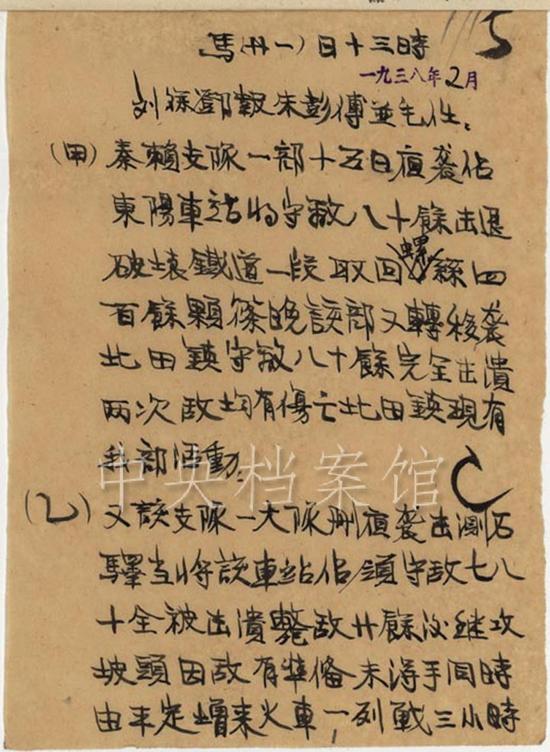 5
馬(廿一)日十三時
一九三八年2月
刘徐鄧報朱彭傅並毛任：
(甲)秦賴支隊一部十五日夜襲佔
東陽車站將守敵八十餘击退
破壞鐵道一段取回螺絲四
百餘顆篠晚該部又轉移袭
北田鎮守敵八十餘完全击潰
两次敌均有傷亡北田鎮現有
我部活動。
(乙)又該支隊一大隊刪夜袭击測石
驛当將該車站佔領守敌七八
十全被击潰斃敌廿餘後継攻
坡頭因敌有準備未得手同時
由平定增来火車一列戰三小時
中央档案馆